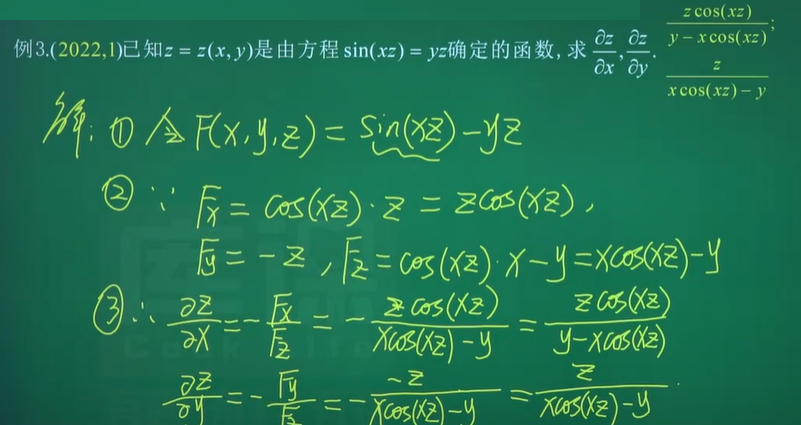 例3.(2022,1)已知z = z(x, y)是由方程 sin(xz) = yz确定的函数, 求 ∂z/∂x, ∂z/∂y. z cos(xz)/(y − x cos(xz)); z/(x cos(xz) − y)
解: ① 令 F(x, y, z) = sin(xz) − yz
② ∵ Fx = cos(xz)·z = zcos(xz),
Fy = −z, Fz = cos(xz)·x − y = xcos(xz) − y
③ ∴ ∂z/∂x = − Fx/Fz = − zcos(xz)/(xcos(xz) − y) = zcos(xz)/(y − xcos(xz))
∂z/∂y = − Fy/Fz = − −z/(xcos(xz) − y) = z/(xcos(xz) − y).